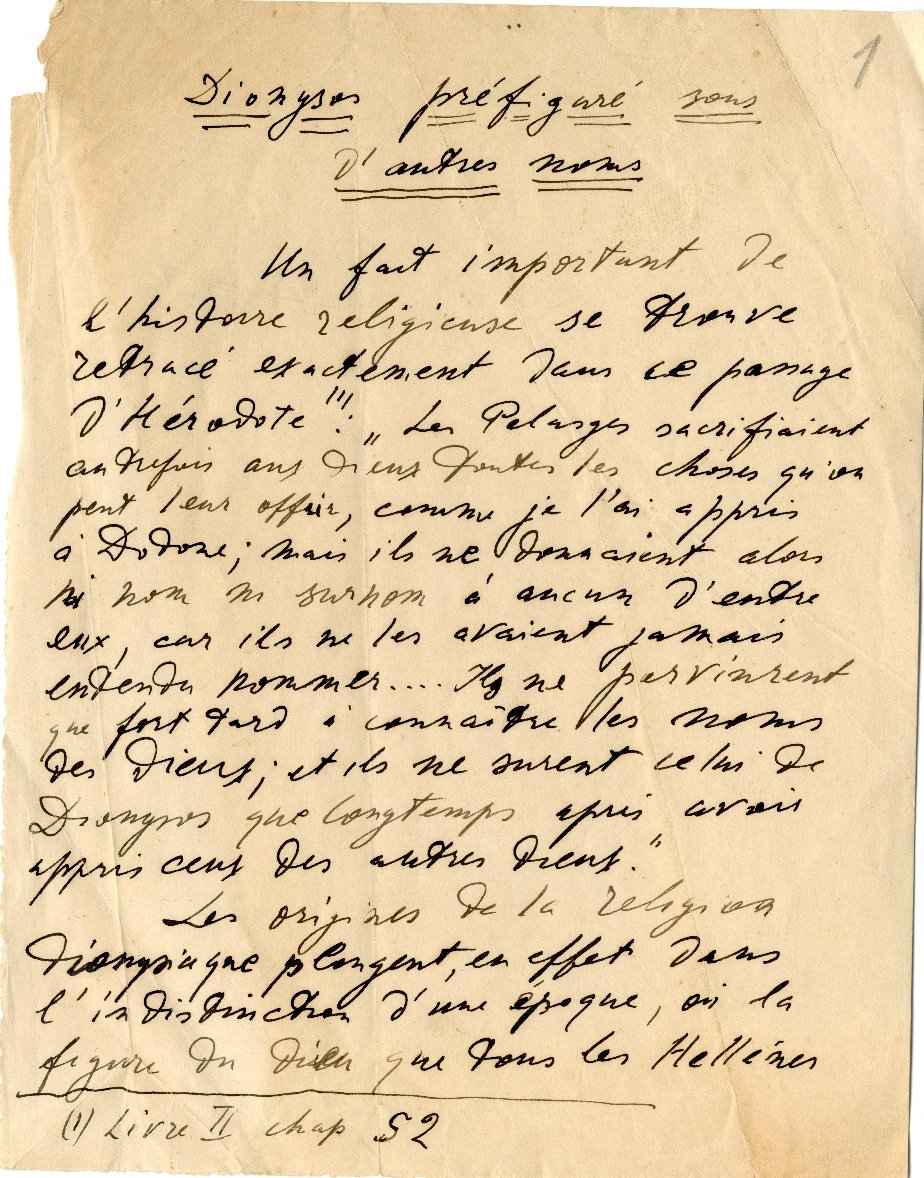 1
Dionysos préfiguré sous
d'autres noms
Un fait important de
l'histoire religieuse se trouve
retracé exactement dans ce passage
d'Hérodote (1): „Les Pelasges sacrifiaient
autrefois aux dieux toutes les choses qu'on
peut leur offrir, comme je l'ai appris
à Dodone; mais ils ne donnaient alors
ni nom ni surnom à aucun d'entre
eux, car ils ne les avaient jamais
entendu nommer.... Ils ne parvinrent
que fort tard à connaître les noms
des dieux; et ils ne surent celui de
Dionysos que longtemps après avoir
appris ceux des autres dieux."
Les origines de la religion
dionysiaque plongent, en effet dans
l'indistinction d'une époque, où la
figure du dieu que tous les Hellènes
(1) Livre II chap 52